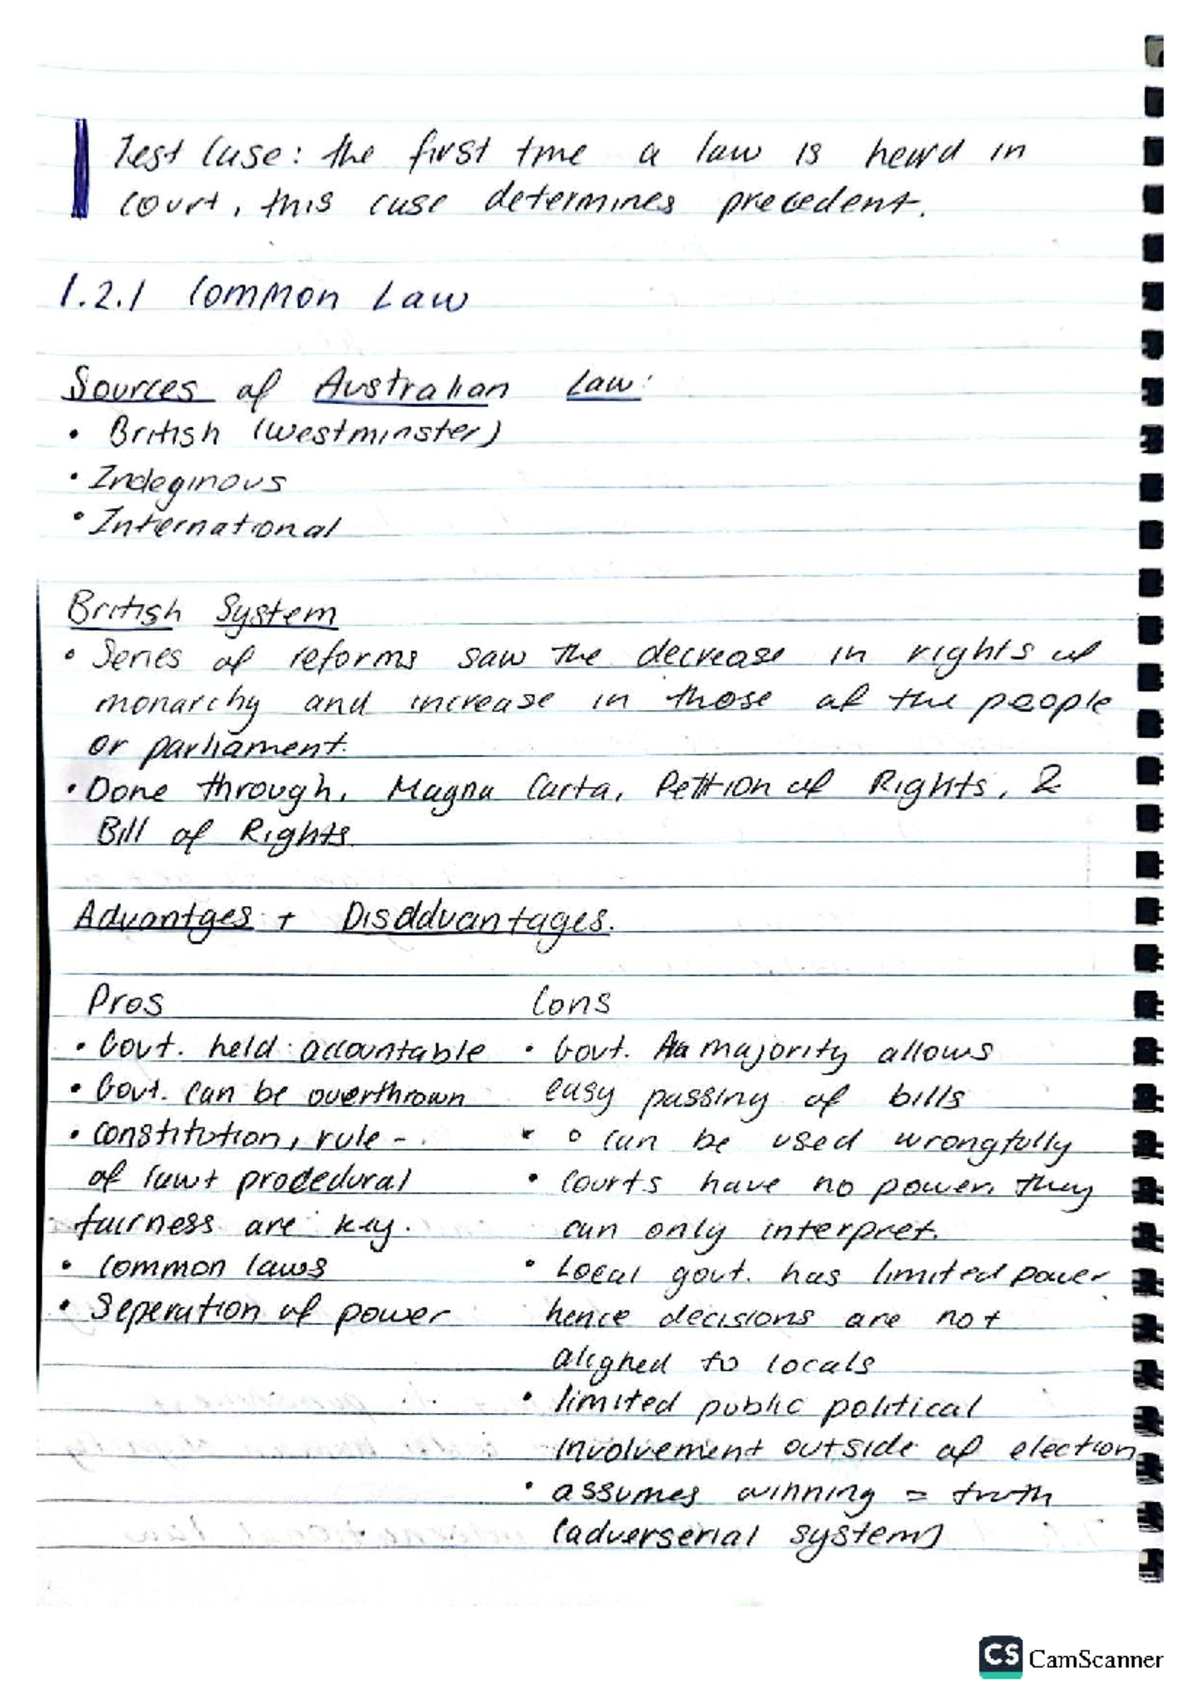 Test Case: the first tme a law is heard in
court, this case determines precedent.
1.2.1 Common Law
Sources of Australian Law:
• British (Westminster)
• Indeginous
• International
British System
• Series of reforms saw the decrease in rights of
monarchy and increase in those of the people
or parliament.
• Done through, Magna Carta, Petition of Rights, &
Bill of Rights.
Advantges + Disddvantages.
Pros
• Govt. held accountable
• Govt. can be overthrown
• constitution, rule -
of law + prodedural
fairness are key.
• common laws
• Seperation of power
Cons
• Govt. majority allows
easy passing of bills
◦ can be used wrongfully
• courts have no power, they
can only interpret.
• Local govt. has limited power
hence decisions are not
alighed to locals
• limited public political
involvement outside of election
• assumes winning = truth
(adverserial system)
CS CamScanner